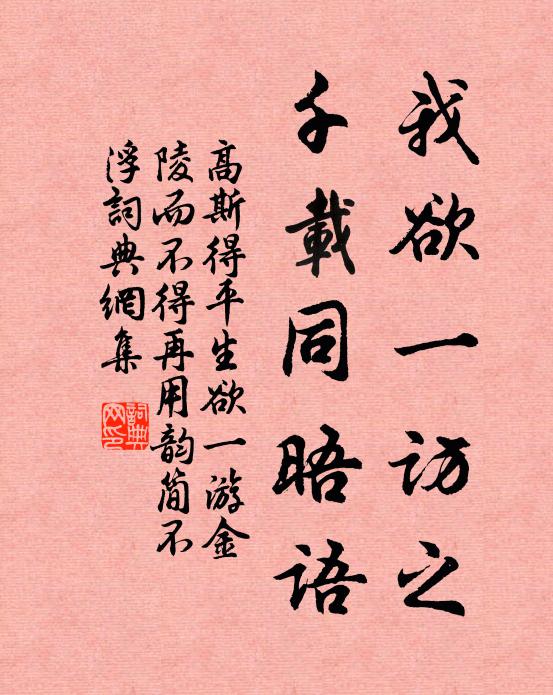 我欲一访之
千載同晤语
高斯得平生欲一游金
陵而不得再用韵简不
浮詞典網集
詞典网印